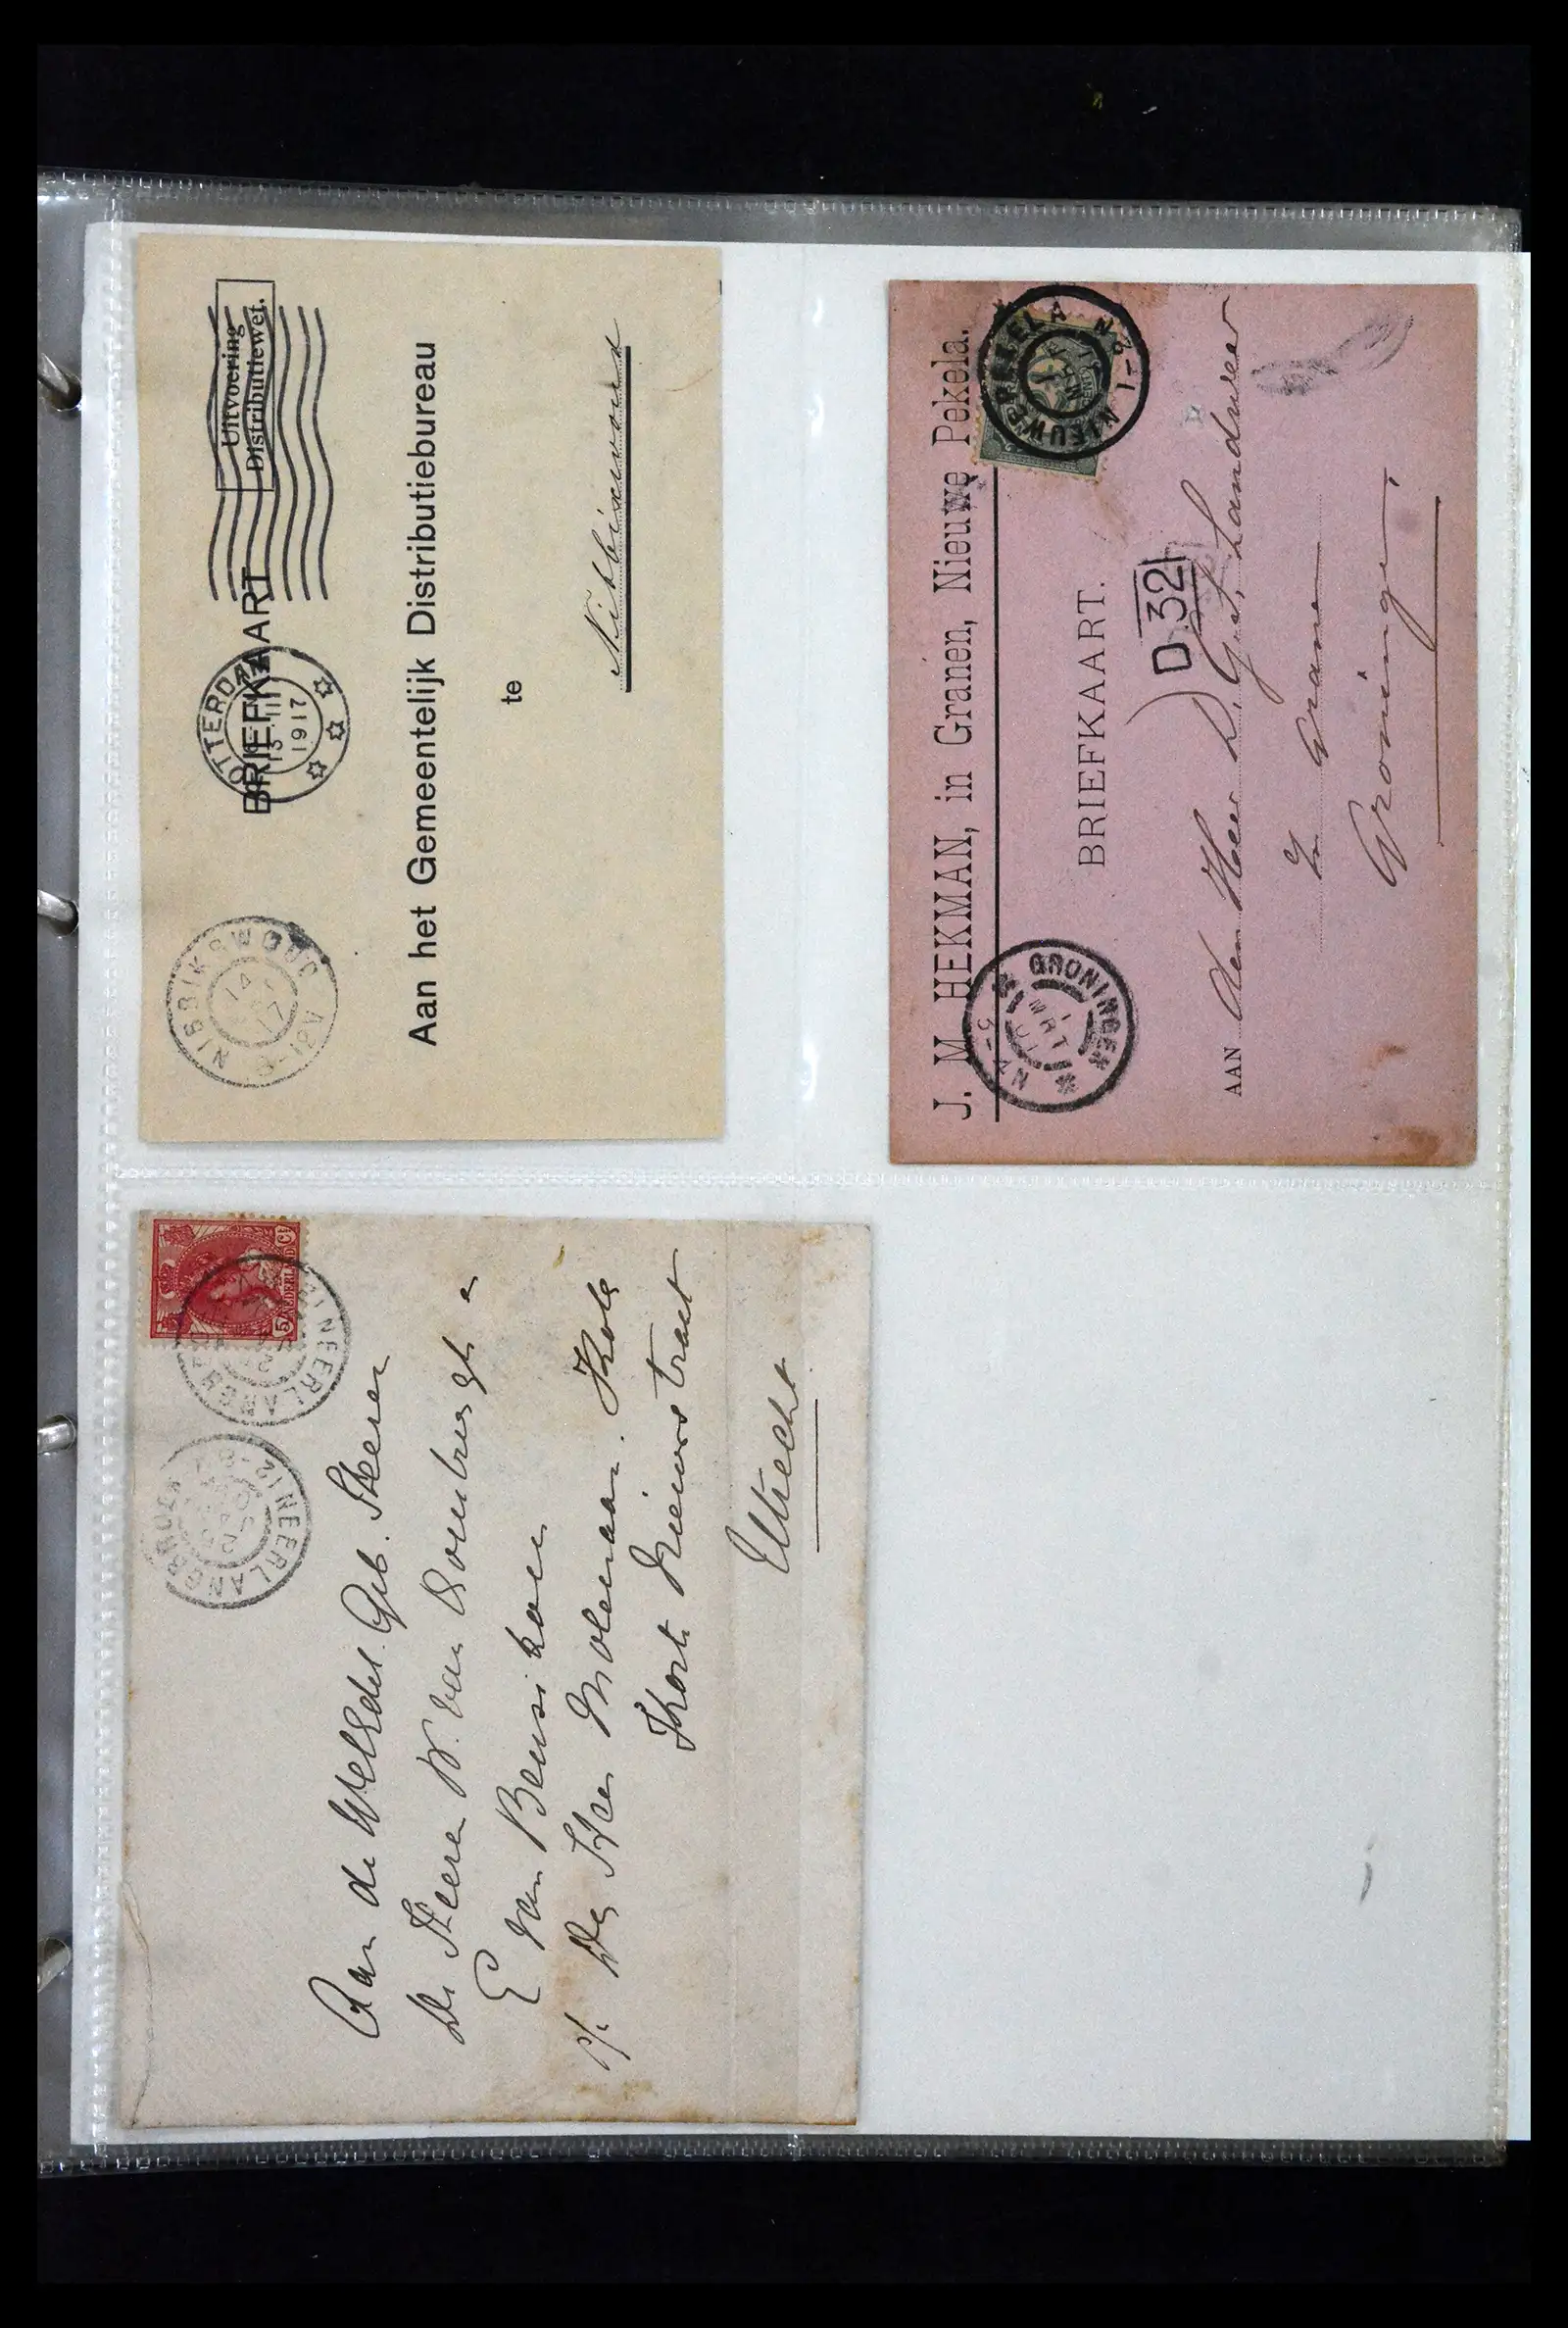 Uitvoering
Distributiewet.
BRIEFKAART
OTTERDAM
13 III
1917
NIBBIKSWOUD
14
17
8-12V
Aan het Gemeentelijk Distributiebureau
te
Nibbixwoud
J. M. HEKMAN, in Granen, Nieuwe Pekela.
NIEUWE PEKELA
12-1 N
GRONINGEN
1 MRT
BRIEFKAART.
D.32
AAN den Heer D. G. S. Landweer
In Granen
Groningen,
5 NEDERLAND Ct
NEERLANGBROEK
NEERLANGBROEK
Aan de WelEdel Geb. Heeren
De Heeren W. van
E van Beusekom
p/a Den Heer Molenaar. Kolk
Korte Nieuwstraat
Utrecht